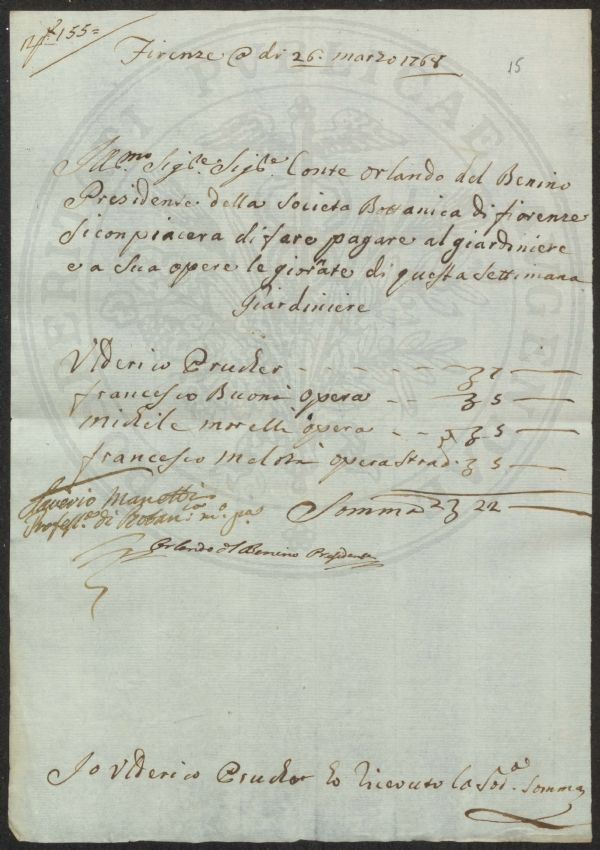 155=
Firenze @ di 26. marzo 1768
15
Ill.mo Sig.re Sig.re Conte Orlando del Benino
Presidente della Societa Bottanica di fiorenze
Si conpiacera di fare pagare al giardiniere
e a sua opere le giornate di questa Settimana
Giardiniere
Vlderico Prucker - - - - - - 7
francesco Buoni opera - - 5
michele morelli opera - - 5
francesco opera 5
Somma 22
Saverio Manetti
Profess.e di Botan.ca
Orlando del Benino Presidente
Io Vlderico Prucker ho riceuuto la Sod.a Somma